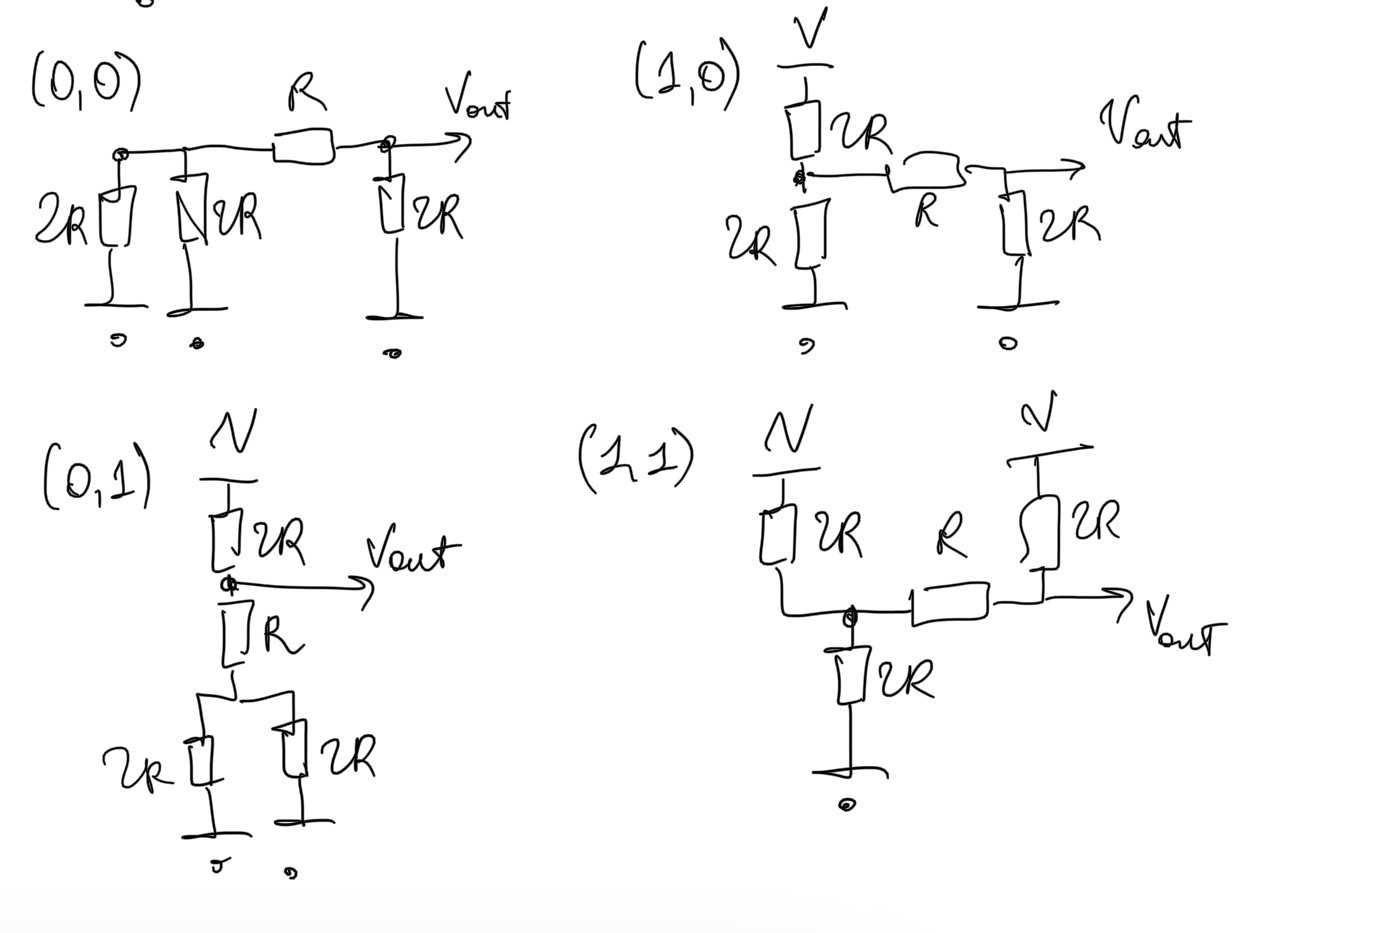 (0,0)
R
Vout
2R
2R
2R
0
0
0
(1,0)
V
2R
Vout
R
2R
2R
0
0
(0,1)
V
2R
Vout
R
2R
2R
0
0
(1,1)
V
V
2R
R
2R
Vout
2R
0